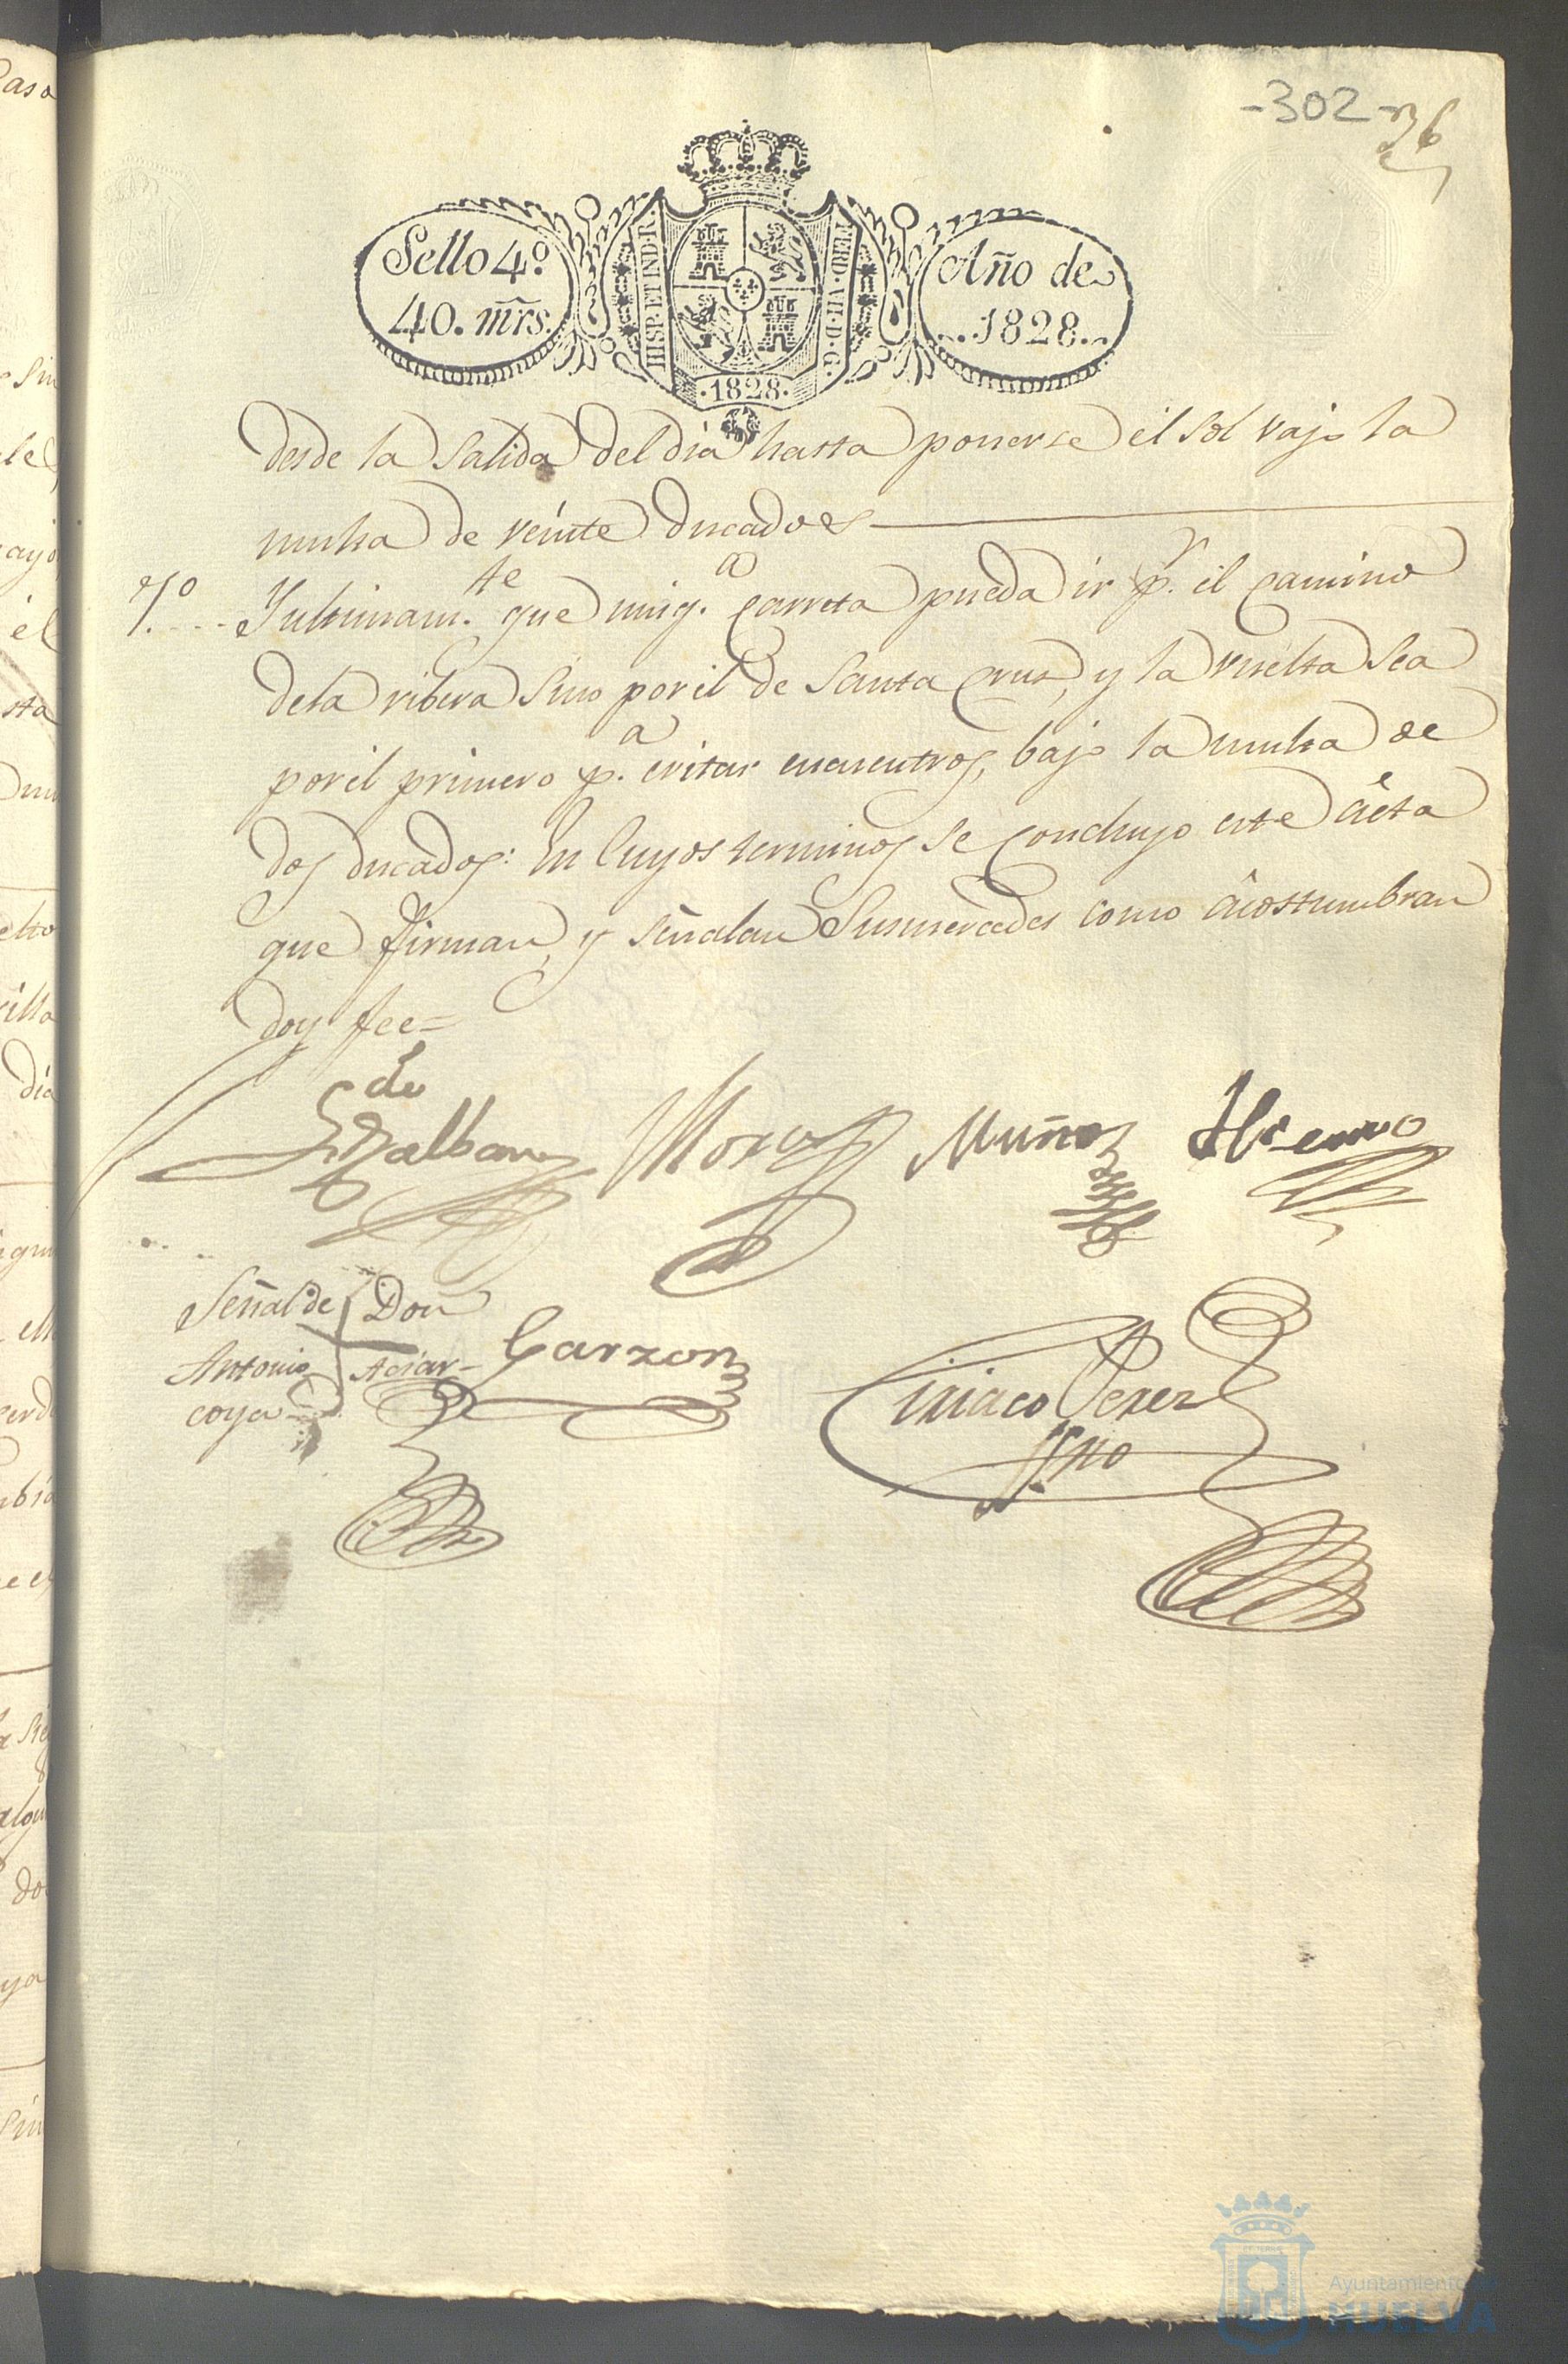 -302-
36
Sello 4º
40. mrs.
HISP. ET IND. R.
FERD. VII. D. G.
.1828.
Año de
1828.
desde la Salida del dia hasta ponerse el sol vajo la
multa de veinte ducados
7º.... Y ultimam.te que ning.a Carreta pueda ir p.r el Camino
dela ribera sino por el de Santa Crus, y la vuelta sea
por el primero p.a evitar encuentros, bajo la multa de
dos ducados: En Cuyos terminos se Concluyo este âcta
que firman, y señalan Susmercedes como âcostumbran
doy fee=
Galban
Mora
Muñoz
Señal de Don
Antonio Aciar-
coya
Garzon
Ciriaco Perez
Ssno
Ayuntamiento de
HUELVA